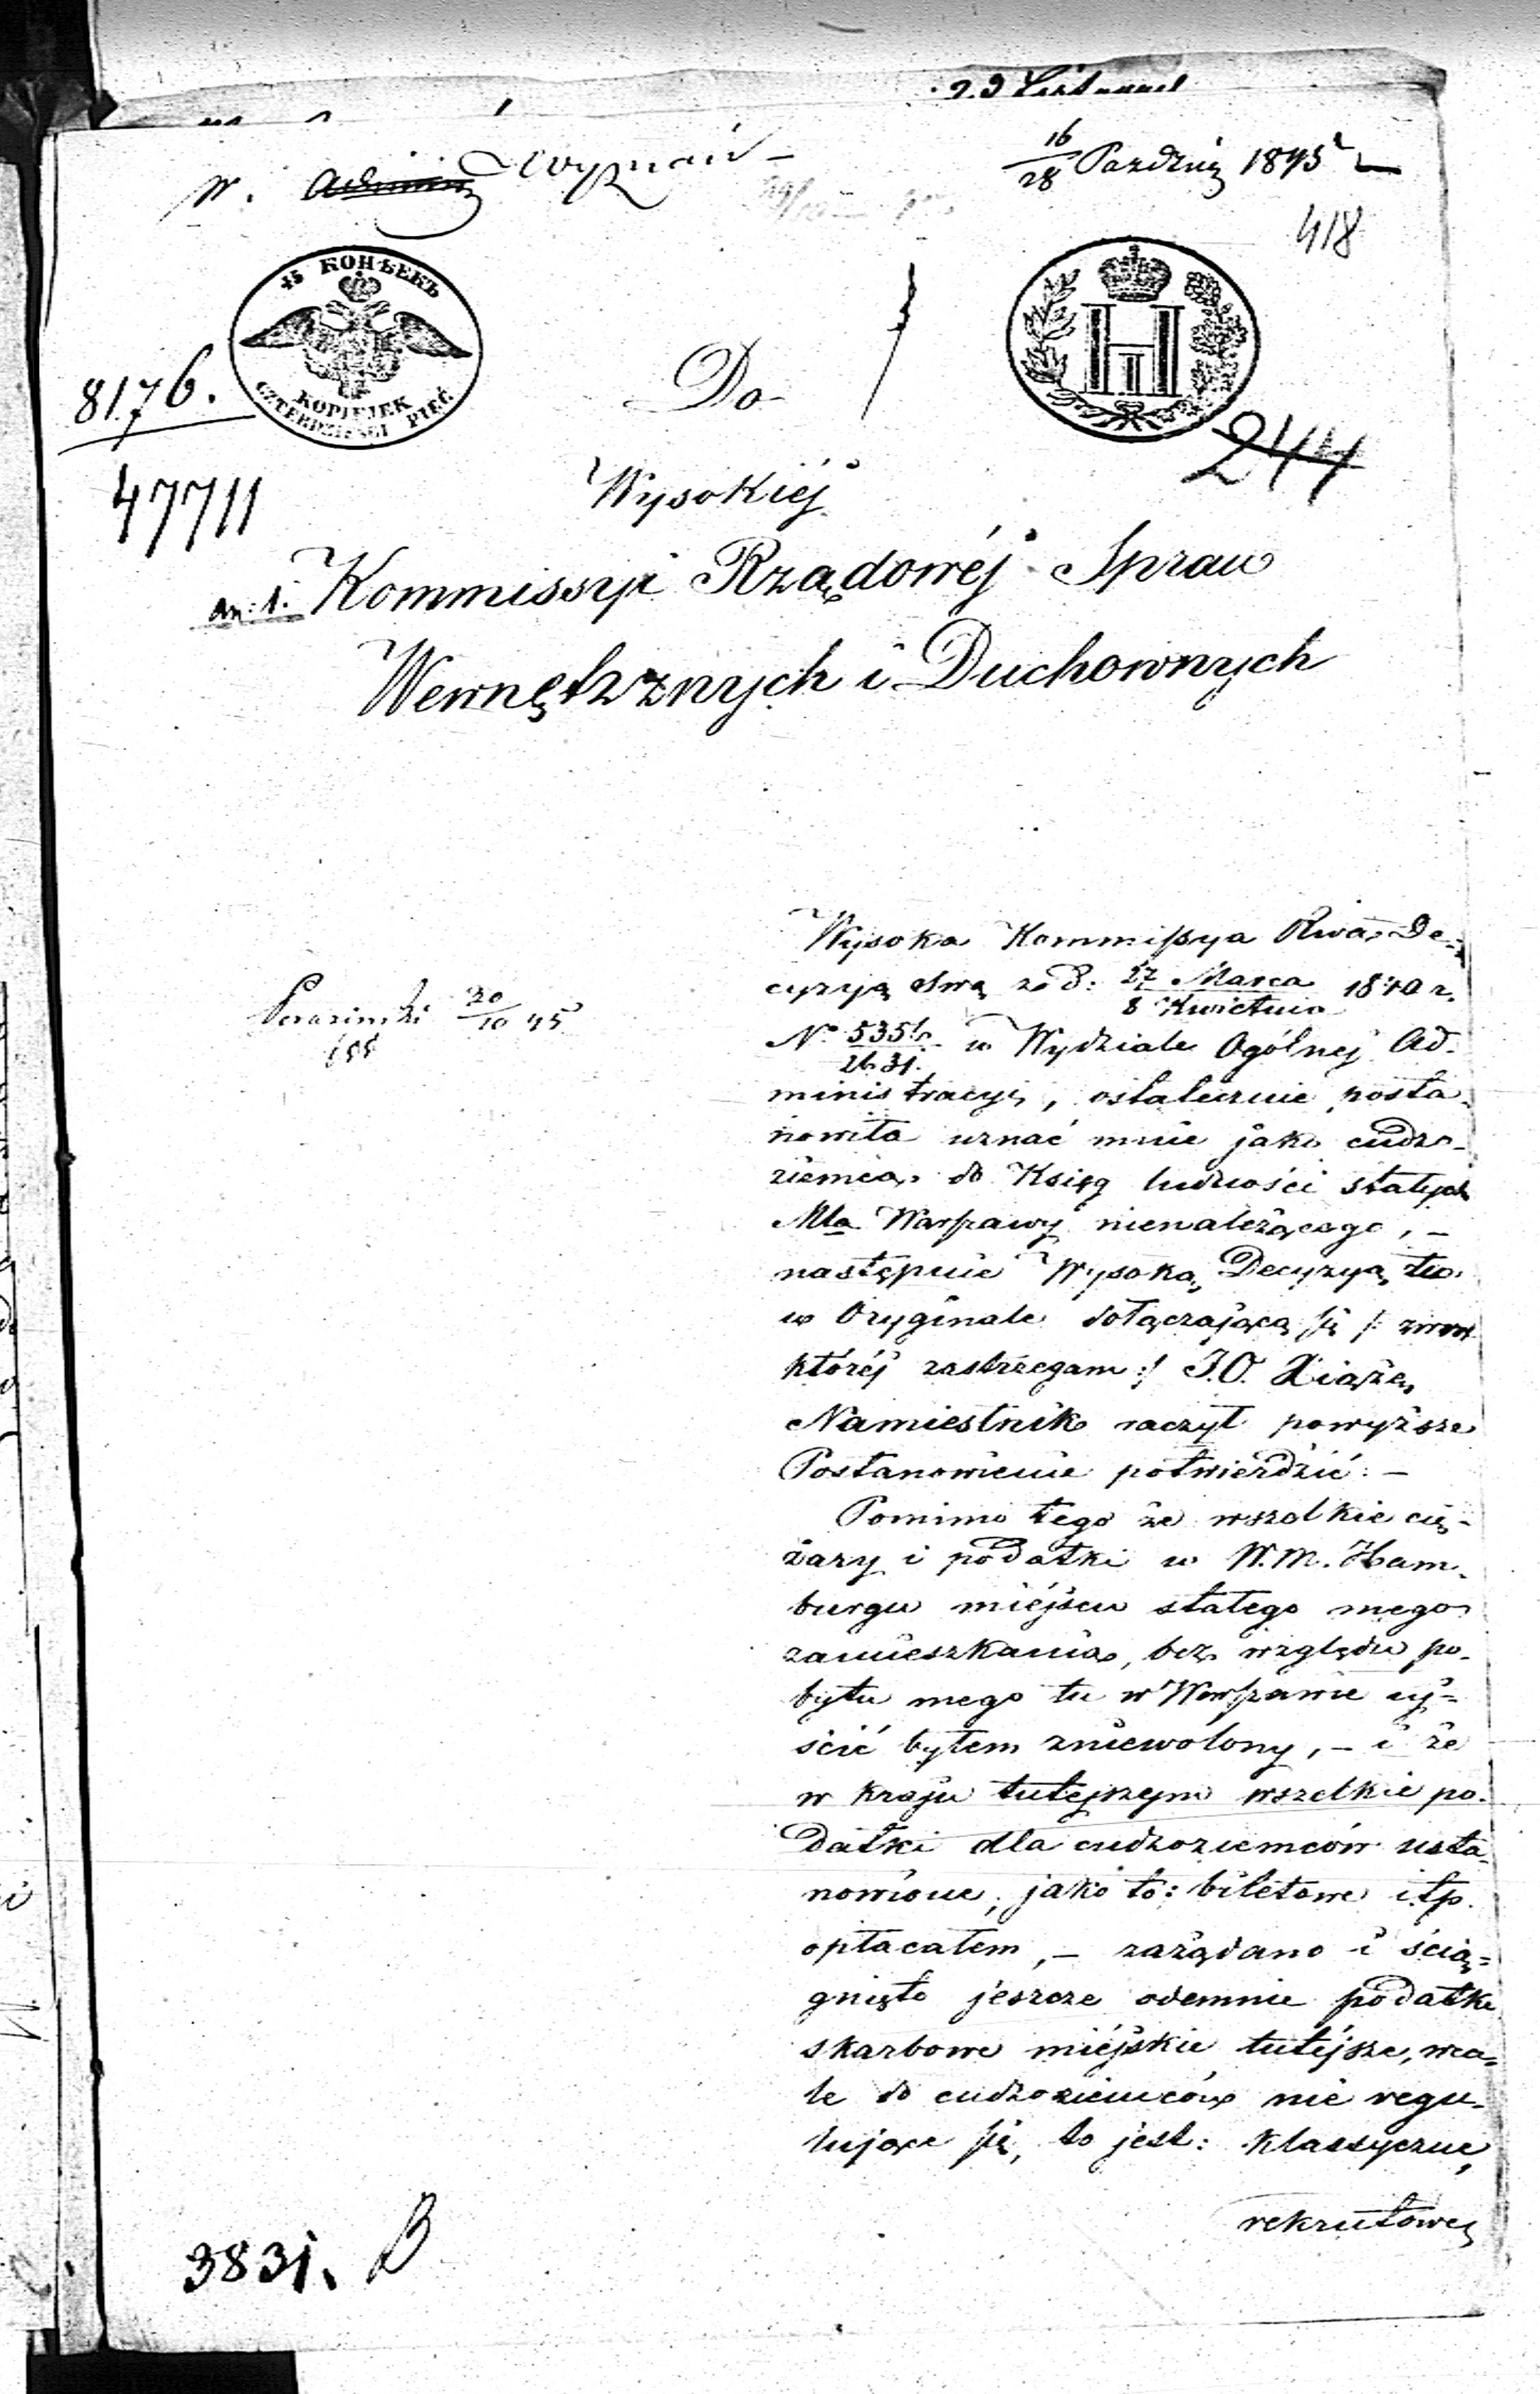 16/28 Paźdźier 1845 r
418
W. Admin Wyznań
45 КОПѢЕКЪ
KOPIEJEK
CZTERDZIEŚCI PIĘĆ
H I
8176.
47711
244
Do
Wysokiéj
an: 1. Kommissyi Rządowéj Spraw
Wewnętrznych i Duchownych
Wysoka Kommissya Rząd: De-
cyzyą swą z d: 27 Marca / 8 Kwietnia 1840 r.
20/10 45
No w Wydziale Ogólnej Ad-
ministracyi, ostatecznie posta-
nowiła uznać mnie jako cudzo-
ziemca, do Ksiąg ludności stałych
Mta Warszawy nienależącego, –
następnie Wysoką Decyzyą tu
w Oryginale dołączającą się /: zwrot
któréj zastrzegam :/ J.O. Xiąże
Namiestnik raczył powyższe
Postanowienie potwierdzić: –
Pomimo tego że wszelkie cię-
żary i podatki w W.M. Ham-
burgu miéjscu stałego mego
zamieszkania, bez względu po-
bytu mego tu w Warszawie uj-
ścić byłem zniewolony, – i że
w kraju tutejszym wszelkie po-
datki dla cudzoziemców usta-
nowione, jako to: biletowe itp.
opłacałem, – zażądano i ścią-
gnięto jeszcze odemnie podatki
skarbowe miéjskie tutéjsze, wca-
le do cudzoziemców nie regu-
lujące się, to jest: klassyczne,
rekrutowe,
3831. B